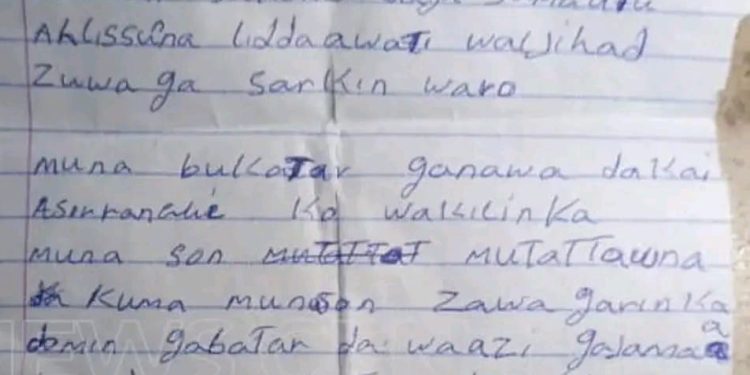 Ahlissuna liddaawati waljihad
Zuwa ga Sarkin waro
muna bukatar ganawa dakai
Asirrance Ko wakilinka
muna son mutattauna
Kuma munason zawa garinka
domin gabatar da waazi